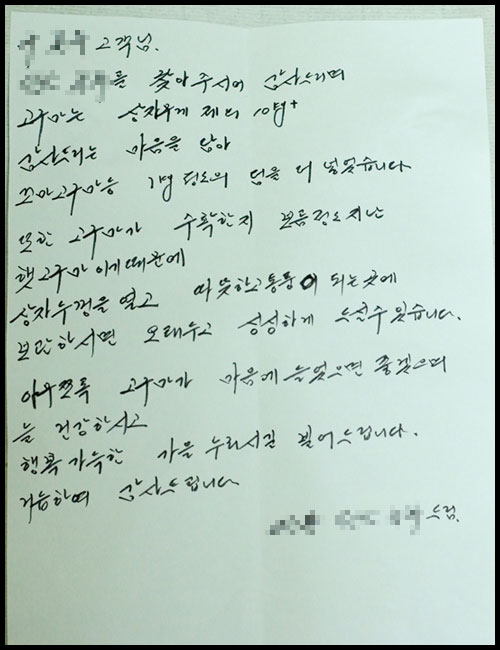 고객님.
를 찾아주셔서 감사드리며
고구마는 상자무게 제외 10kg+
감사드리는 마음을 담아
꼬마고구마등 1kg 정도의 덤을 더 넣었습니다
또한 고구마가 수확한지 보름정도 지난
햇고구마 이기때문에
상자뚜껑을 열고 따뜻하고 통풍이 되는곳에
보관하시면 오래두고 싱싱하게 드실수 있습니다.
아무쪼록 고구마가 마음에 들었으면 좋겠으며
늘 건강하시고
행복 가득한 가을 누리시길 빌어드립니다.
거듭하여 감사드립니다
드림.